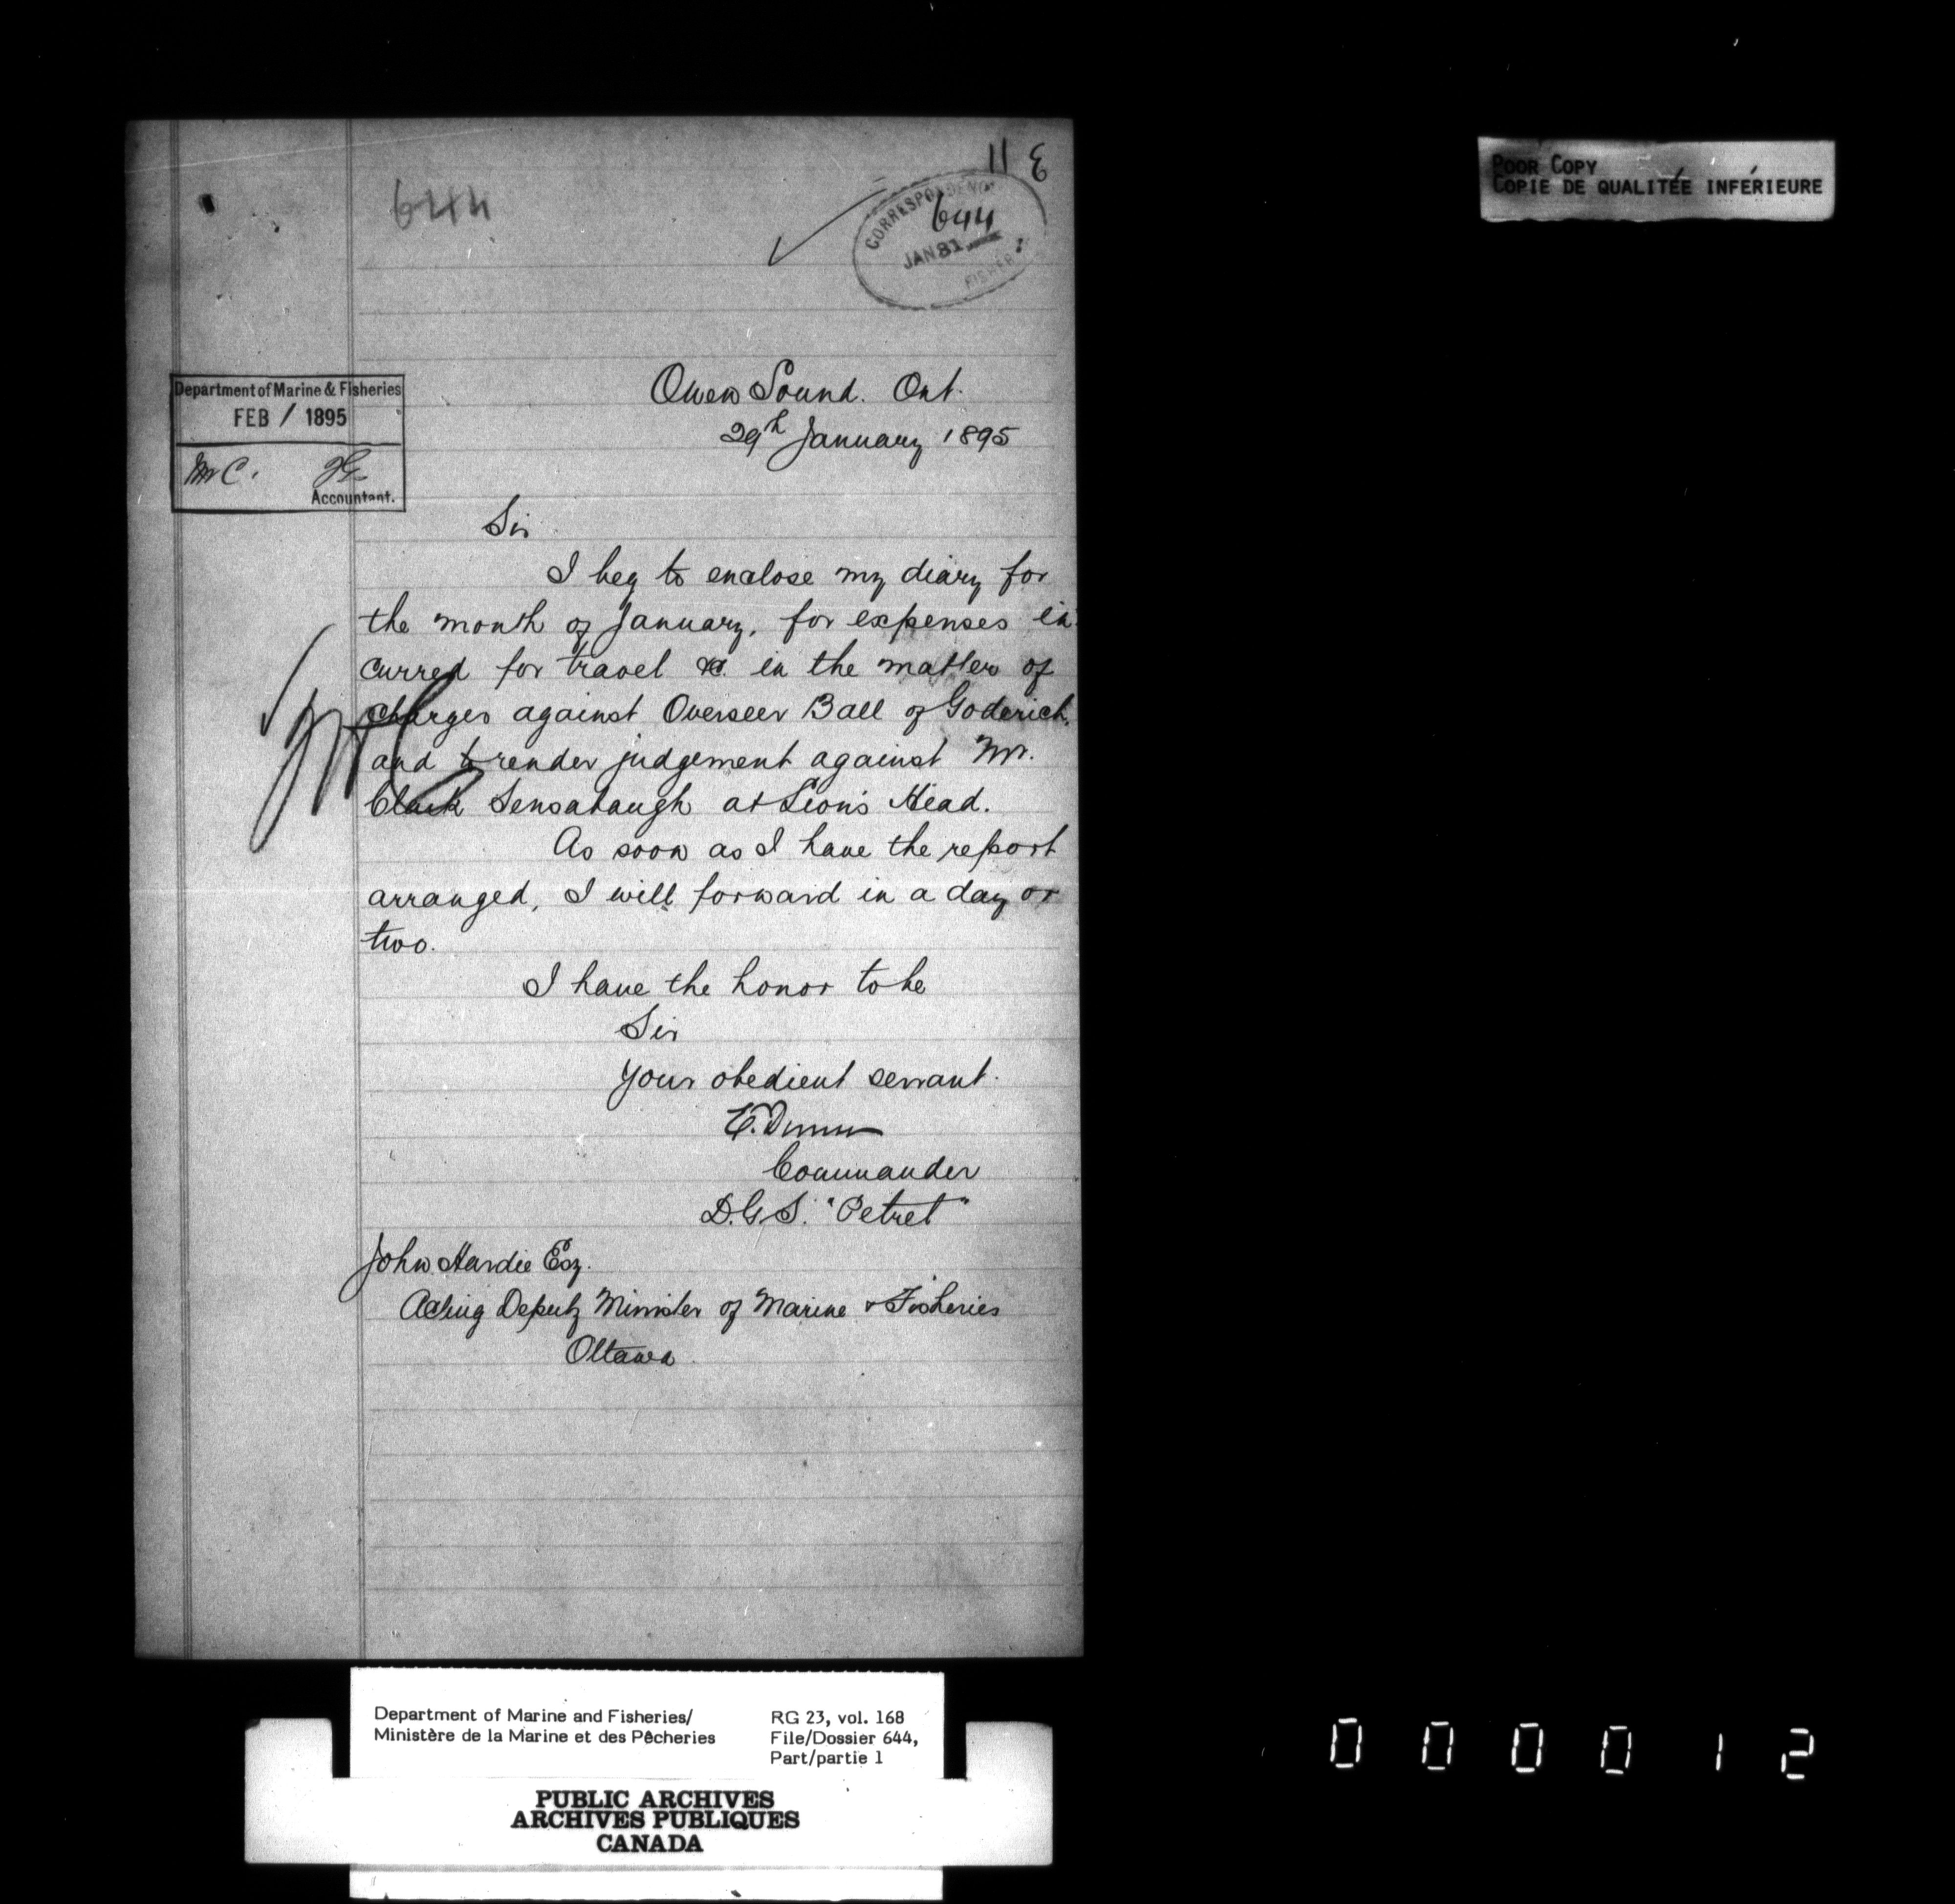 11 3
644
CORRESPONDENCE
644
JAN 31
FISHER
POOR COPY
COPIE DE QUALITÉE INFÉRIEURE
Owen Sound. Ont.
29th January 1895
Department of Marine & Fisheries
FEB / 1895
Mr C.
Accountant.
Sir
I beg to enclose my diary for
the month of January, for expenses in-
curred for travel &c. in the matter of
charges against Overseer Ball of Goderich,
and to render judgement against Mr.
Clark Sensabaugh at Lion's Head.
As soon as I have the report
arranged, I will forward in a day or
two.
I have the honor to be
Sir
Your obedient servant.
E. Dunn
Commander
D.G.S. "Petrel"
John Hardie Esq.
Acting Deputy Minister of Marine & Fisheries
Ottawa
Department of Marine and Fisheries/
Ministère de la Marine et des Pêcheries
RG 23, vol. 168
File/Dossier 644,
Part/partie 1
PUBLIC ARCHIVES
ARCHIVES PUBLIQUES
CANADA
0 0 0 0 1 2